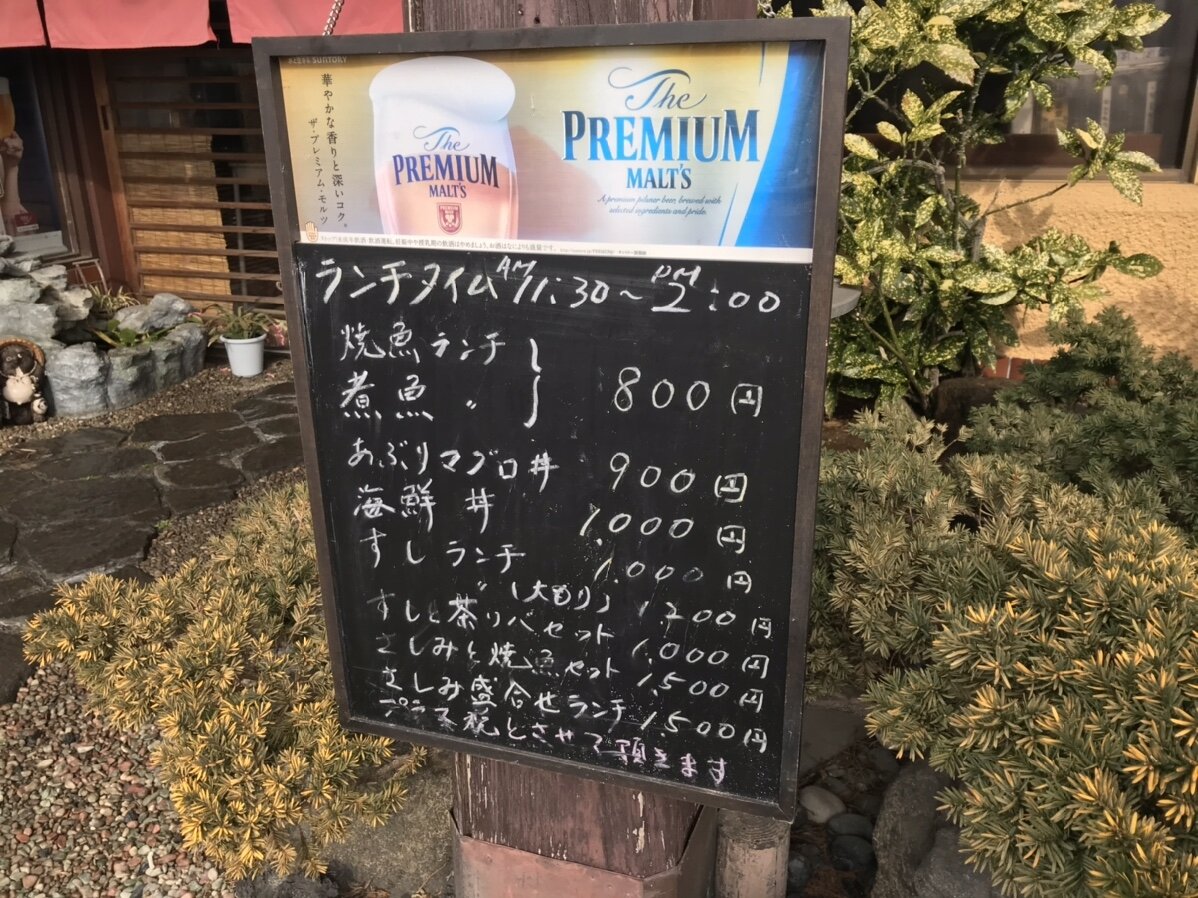 水と生きる SUNTORY
華やかな香りと深いコク。
ザ・プレミアム・モルツ
The
PREMIUM
MALT'S
The
PREMIUM
MALT'S
A premium pilsner beer, brewed with
selected ingredients and pride.
ランチタイム AM11:30～PM2:00
焼魚ランチ
煮魚 〃 800円
あぶりマグロ丼 900円
海鮮丼 1.000円
すしランチ 1.000円
〃 (大もり) 1200円
すしと茶ソバセット 1.000円
さしみと焼魚セット 1.500円
さしみ盛合せランチ 1.500円
プラス税とさせて頂きます